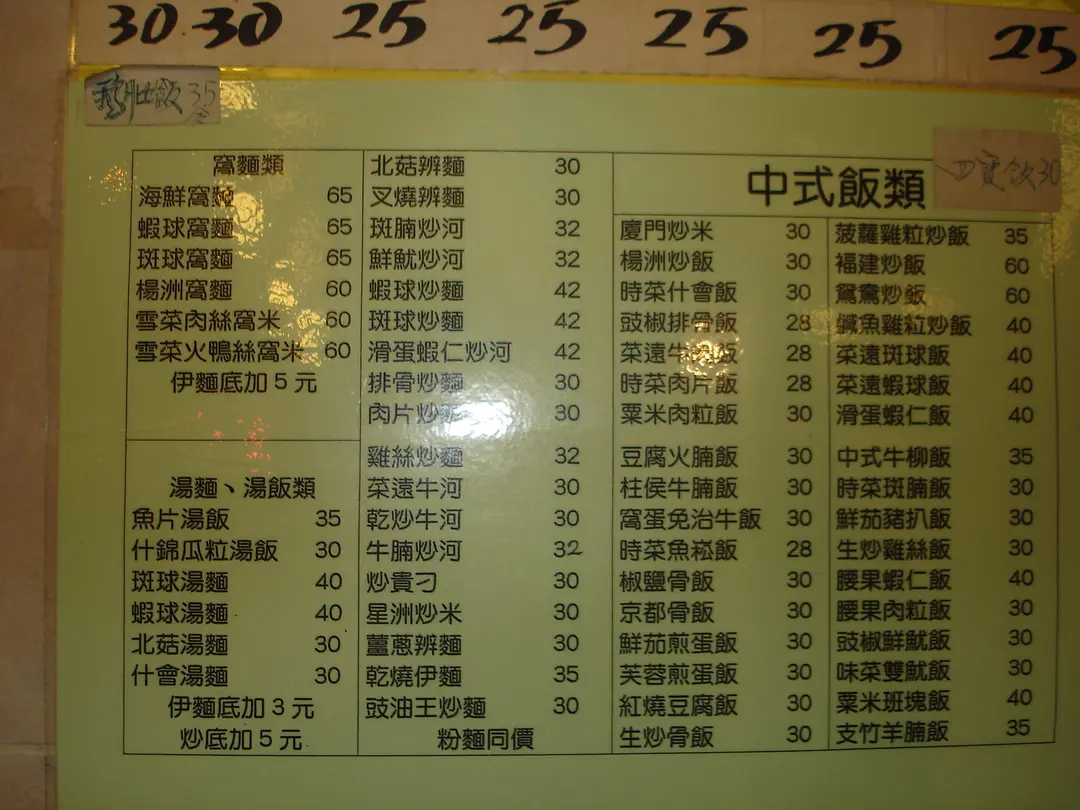 30 30 25 25 25 25 25
飯 35
四寶飯 30
窩麵類
海鮮窩麵 65
蝦球窩麵 65
斑球窩麵 65
楊洲窩麵 60
雪菜肉絲窩米 60
雪菜火鴨絲窩米 60
伊麵底加5元
湯麵、湯飯類
魚片湯飯 35
什錦瓜粒湯飯 30
斑球湯麵 40
蝦球湯麵 40
北菇湯麵 30
什會湯麵 30
伊麵底加3元
炒底加5元
北菇辦麵 30
叉燒辦麵 30
斑腩炒河 32
鮮魷炒河 32
蝦球炒麵 42
斑球炒麵 42
滑蛋蝦仁炒河 42
排骨炒麵 30
肉片炒 30
雞絲炒麵 32
菜遠牛河 30
乾炒牛河 30
牛腩炒河 32
炒貴刁 30
星洲炒米 30
薑蔥辦麵 30
乾燒伊麵 35
豉油王炒麵 30
粉麵同價
中式飯類
廈門炒米 30
楊洲炒飯 30
時菜什會飯 30
豉椒排骨飯 28
菜遠牛飯 28
時菜肉片飯 28
粟米肉粒飯 30
豆腐火腩飯 30
柱侯牛腩飯 30
窩蛋免治牛飯 30
時菜魚崧飯 28
椒鹽骨飯 30
京都骨飯 30
鮮茄煎蛋飯 30
芙蓉煎蛋飯 30
紅燒豆腐飯 30
生炒骨飯 30
菠蘿雞粒炒飯 35
福建炒飯 60
鴛鴦炒飯 60
鹹魚雞粒炒飯 40
菜遠斑球飯 40
菜遠蝦球飯 40
滑蛋蝦仁飯 40
中式牛柳飯 35
時菜斑腩飯 30
鮮茄豬扒飯 30
生炒雞絲飯 30
腰果蝦仁飯 40
腰果肉粒飯 30
豉椒鮮魷飯 30
味菜雙魷飯 30
粟米班塊飯 40
支竹羊腩飯 35